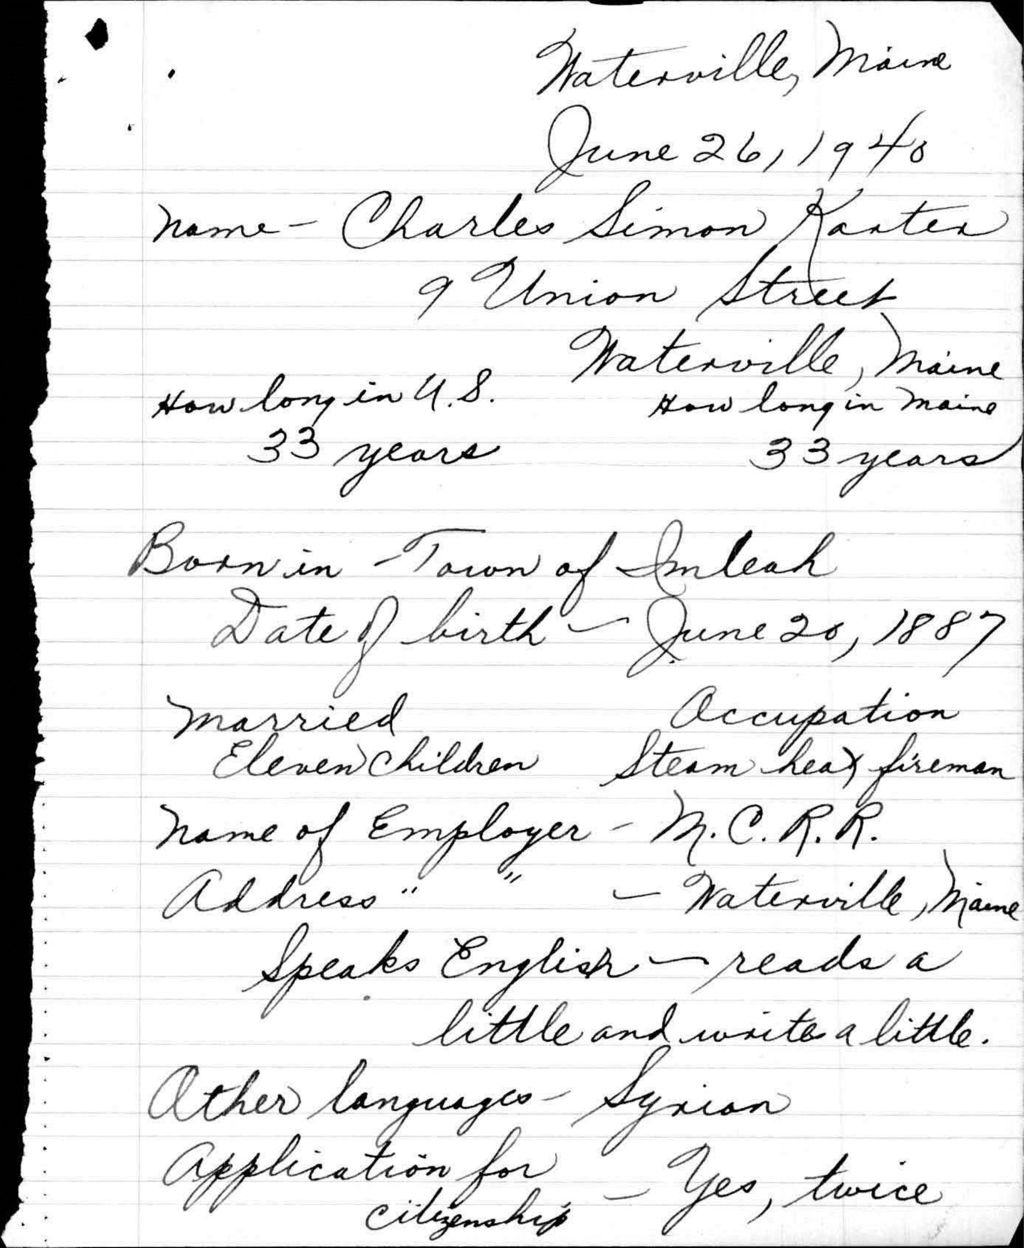 Waterville, Maine
June 26, 1940
Name - Charles Simon Karter
9 Union Street
Waterville, Maine
How long in U.S. How long in Maine
33 years 33 years
Born in - Town of Imleah
Date of birth - June 20, 1887
Married Occupation
Eleven children Steam heat fireman
Name of Employer - M.C.R.R.
Address " " - Waterville, Maine
Speaks English - reads a
little and writes a little.
Other languages - Syrian
Application for - Yes, twice
citizenship